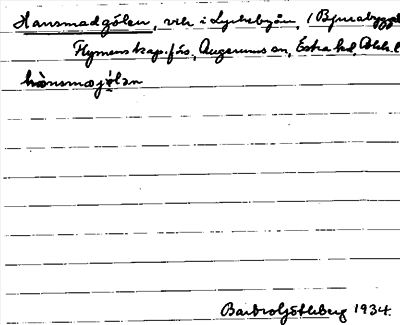 Hansmadgölen, vik i Lyckebyån, i Bjurabygget
Flymens kap.förs., Augerums sn, Östra hd, Blek. l
hànsmaJö̀lan
Barbro Götleberg 1934.